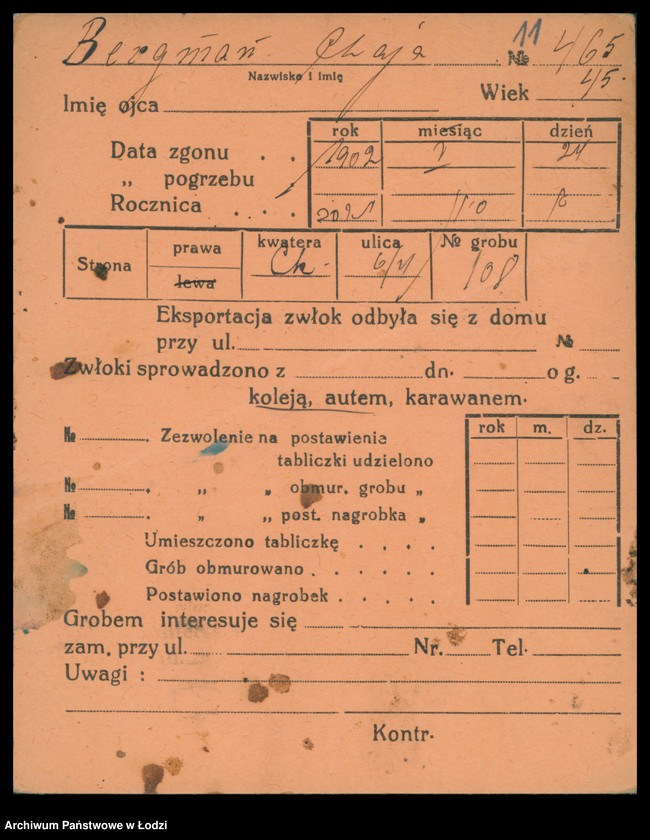 Bergman Chaja 11 № 465
Nazwisko i imię
Wiek 45.
Imię ojca
rok miesiąc dzień
Data zgonu . . 1902 V 24
„ pogrzebu .
Rocznica . . . .
Strona prawa lewa kwatera Ch. ulica № grobu 108
Eksportacja zwłok odbyła się z domu
przy ul. №
Zwłoki sprowadzono z dn. o g.
koleją, autem, karawanem.
rok m. dz.
№ . Zezwolenie na postawienie
tabliczki udzielono
№ . „ „ obmur. grobu „
№ . „ „ post. nagrobka „
Umieszczono tabliczkę . . . .
Grób obmurowano . . . . .
Postawiono nagrobek . . . .
Grobem interesuje się
zam. przy ul. Nr. Tel.
Uwagi :
Kontr.
Archiwum Państwowe w Łodzi